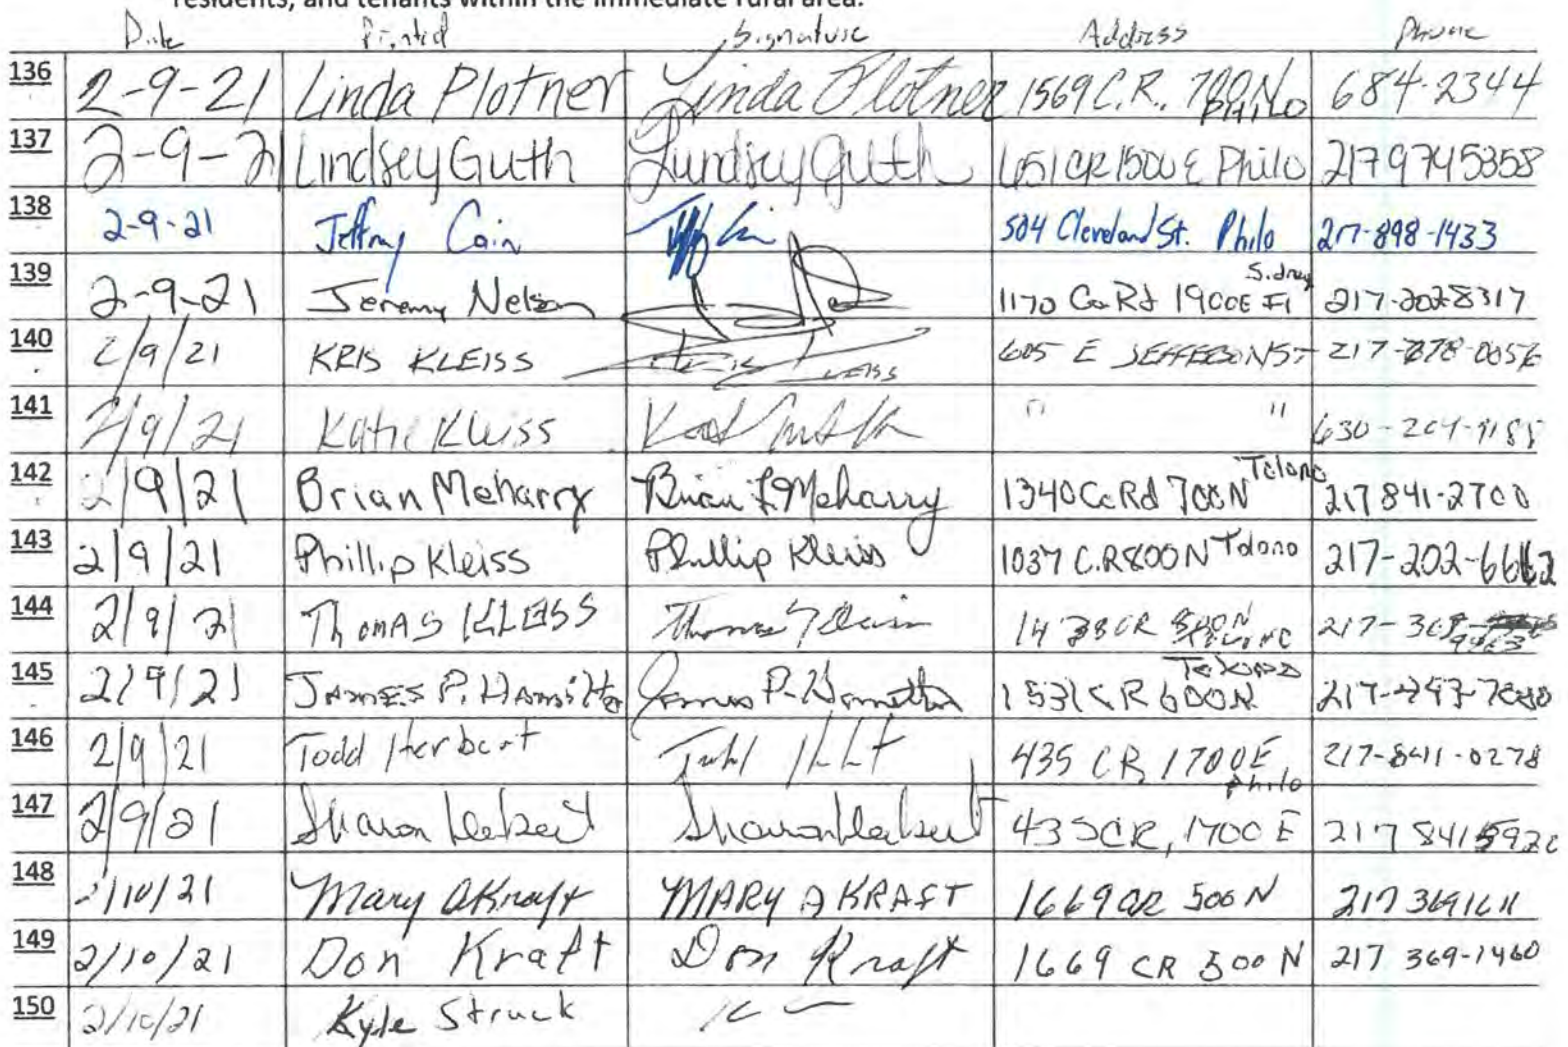 residents, and tenants within the immediate rural area.
Date Printed Signature Address Phone
136 2-9-21 Linda Plotner Linda Plotner 1569 C.R. 700N Philo 684-2344
137 2-9-21 Lindsey Guth Lindsey Guth 651 CR 1500 E Philo 2179745358
138 2-9-21 Jeffrey Cain 504 Cleveland St. Philo 217-898-1433
139 2-9-21 Jeremy Nelson 1170 Co Rd 1900E Sidney 217-2028317
140 2/9/21 KRIS KLEISS 605 E JEFFERSON ST 217-778-0056
141 2/9/21 Katie Kleiss " " 630-204-9188
142 2/9/21 Brian Meharry Brian F Meharry 1340 Co Rd 700N Tolono 217 841-2700
143 2/9/21 Phillip Kleiss Phillip Kleiss 1037 C.R 800N Tolono 217-202-6662
144 2/9/21 THOMAS KLEISS Thomas CR 217-369-
145 2/9/21 JAMES P. Hamilton James P. Hamilton 1531 CR 600N 217-
146 2/9/21 Todd Herbert 435 CR 1700E Philo 217-841-0278
147 2/9/21 Sharon Herbert Sharon Herbert 435 CR, 1700 E 217 841
148 2/10/21 Mary A Kraft MARY A KRAFT 1669 CR 500N 217 3691611
149 2/10/21 Don Kraft Don Kraft 1669 CR 500 N 217 369-1460
150 2/10/21 Kyle Struck